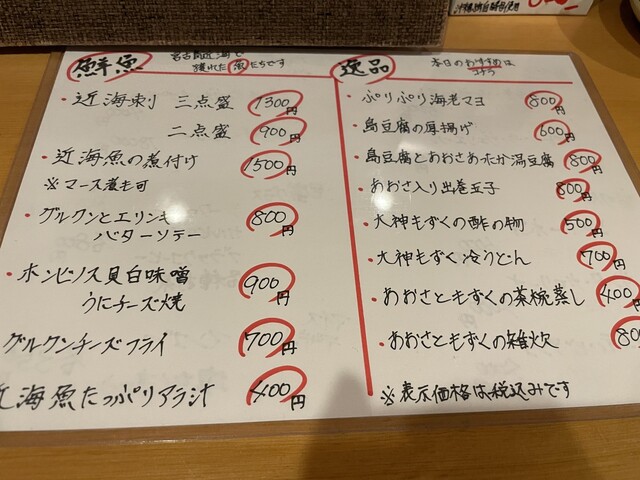 鮮魚
宮古島近海で
獲れた魚たちです
・近海刺 三点盛 1300円
二点盛 900円
・近海魚の煮付け 1500円
※マース煮も可
・グルクンとエリンギ 800円
バターソテー
・ホンビノス貝白味噌 900円
うにチーズ焼
グルクンチーズフライ 700円
近海魚たっぷりアラ汁 400円
逸品
本日のおすすめは
コチラ
・ぷりぷり海老マヨ 800円
・島豆腐の厚揚げ 600円
・島豆腐とあおさあったか湯豆腐 800円
・あおさ入り出巻玉子 800円
・大神もずくの酢の物 500円
・大神もずく冷うどん 700円
・あおさともずくの茶椀蒸し 400円
・あおさともずくの雑炊 800
※表示価格は税込みです